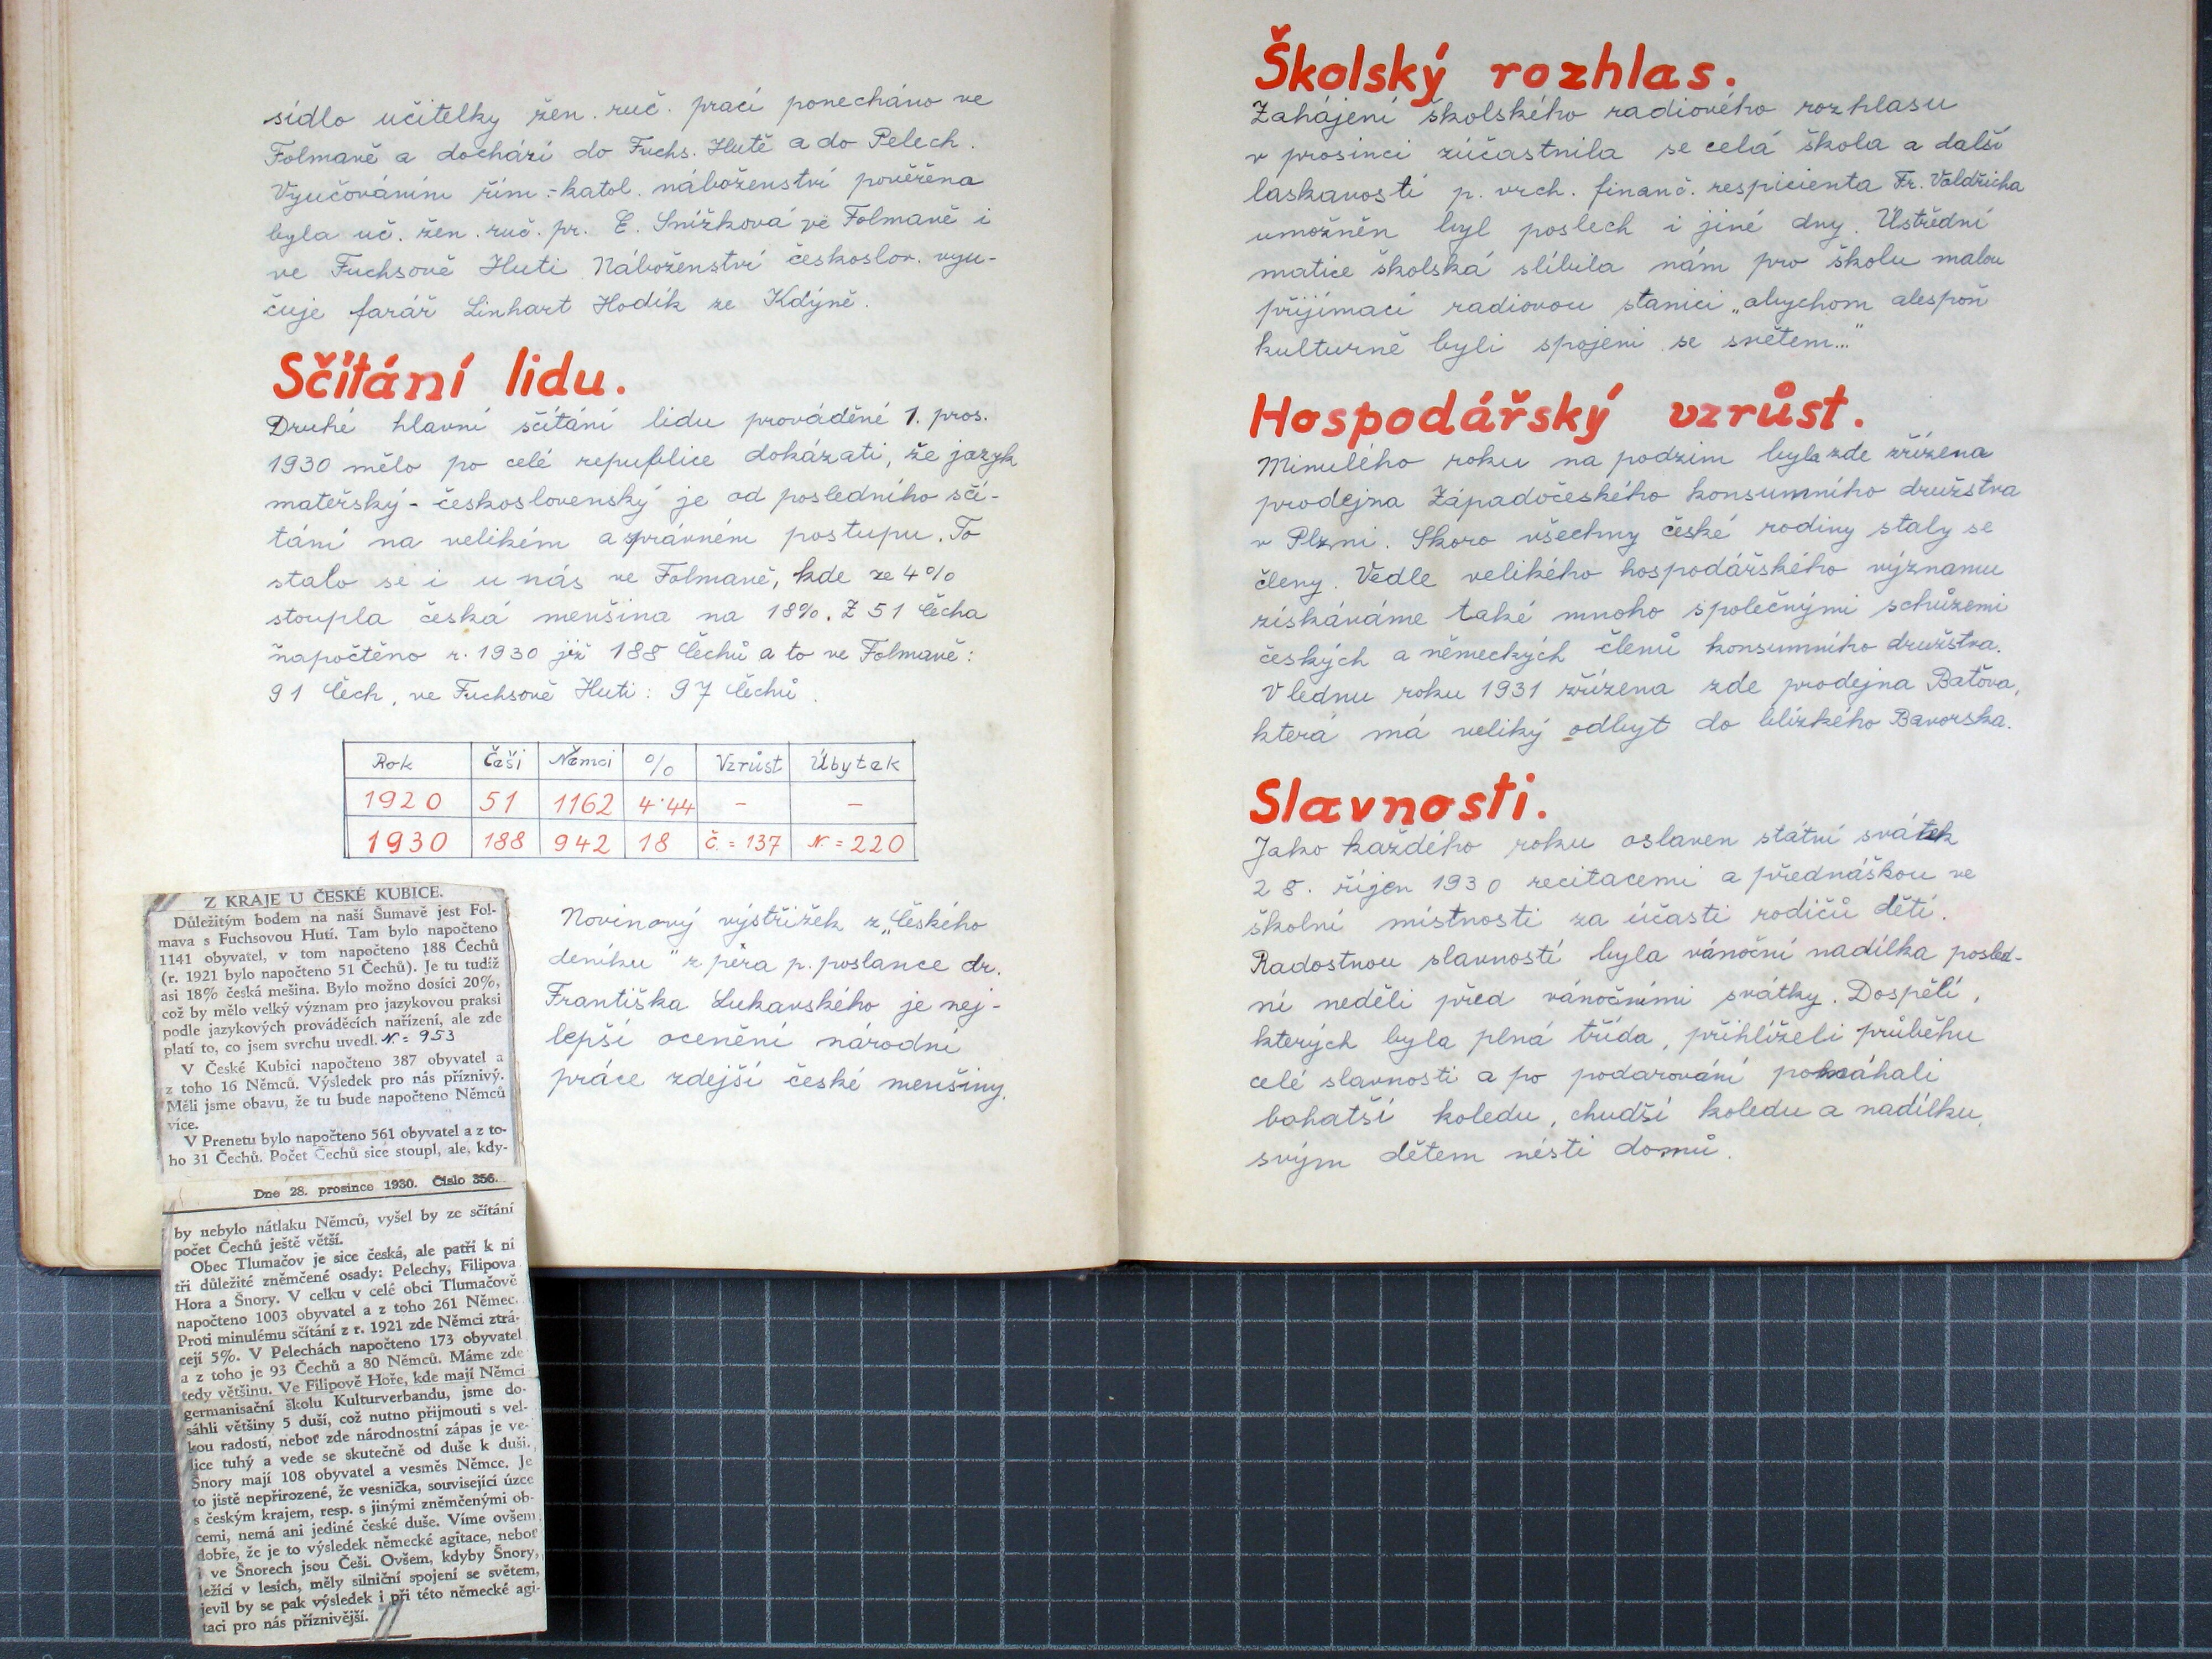 sídlo učitelky žen. ruč. prací ponecháno ve
Folmavě a dochází do Fuchs. Hutě a do Pelech.
Vyučováním řím.-katol. náboženství pověřena
byla uč. žen. ruč. pr. E. Snížková ve Folmavě i
ve Fuchsově Huti. Náboženství českoslov. vyu-
čuje farář Linhart Hodík ze Kdýně.
Sčítání lidu.
Druhé hlavní sčítání lidu prováděné 1. pros.
1930 mělo po celé republice dokázati, že jazyk
mateřský - československý je od posledního sčí-
tání na velikém a správném postupu. To
stalo se i u nás ve Folmavě, kde ze 4%
stoupla česká menšina na 18%. Z 51 Čecha
napočteno r. 1930 již 188 Čechů a to ve Folmavě:
91 Čech, ve Fuchsově Huti: 97 Čechů.
Rok Češi Němci % Vzrůst Úbytek
1920 51 1162 4·44 – –
1930 188 942 18 Č. = 137 N. = 220
Novinový výstřižek z „Českého
deníku" z péra p. poslance dr.
Františka Lukavského je nej-
lepší ocenění národní
práce zdejší české menšiny.
Z KRAJE U ČESKÉ KUBICE.
Důležitým bodem na naší Šumavě jest Fol-
mava s Fuchsovou Hutí. Tam bylo napočteno
1141 obyvatel, v tom napočteno 188 Čechů
(r. 1921 bylo napočteno 51 Čechů). Je tu tudíž
asi 18% česká mešina. Bylo možno dosíci 20%,
což by mělo velký význam pro jazykovou praksi
podle jazykových prováděcích nařízení, ale zde
platí to, co jsem svrchu uvedl. N. = 953
V České Kubici napočteno 387 obyvatel a
z toho 16 Němců. Výsledek pro nás příznivý.
Měli jsme obavu, že tu bude napočteno Němců
více.
V Prenetu bylo napočteno 561 obyvatel a z to-
ho 31 Čechů. Počet Čechů sice stoupl, ale, kdy-
Dne 28. prosince 1930. Číslo 356.
by nebylo nátlaku Němců, vyšel by ze sčítání
počet Čechů ještě větší.
Obec Tlumačov je sice česká, ale patří k ní
tři důležité zněmčené osady: Pelechy, Filipova
Hora a Šnory. V celku v celé obci Tlumačově
napočteno 1003 obyvatel a z toho 261 Němec.
Proti minulému sčítání z r. 1921 zde Němci ztrá-
cejí 5%. V Pelechách napočteno 173 obyvatel
a z toho je 93 Čechů a 80 Němců. Máme zde
tedy většinu. Ve Filipově Hoře, kde mají Němci
germanisační školu Kulturverbandu, jsme do-
sáhli většiny 5 duší, což nutno přijmouti s vel-
kou radostí, neboť zde národnostní zápas je ve-
lice tuhý a vede se skutečně od duše k duši.
Šnory mají 108 obyvatel a vesměs Němce. Je
to jistě nepřirozené, že vesnička, související úzce
s českým krajem, resp. s jinými zněmčenými ob-
cemi, nemá ani jediné české duše. Víme ovšem
dobře, že je to výsledek německé agitace, neboť
i ve Šnorech jsou Češi. Ovšem, kdyby Šnory,
ležící v lesích, měly silniční spojení se světem,
jevil by se pak výsledek i při této německé agi-
taci pro nás příznivější.
Školský rozhlas.
Zahájení školského radiového rozhlasu
v prosinci zúčastnila se celá škola a další
laskavostí p. vrch. finanč. respicienta Fr. Valdřicha
umožněn byl poslech i jiné dny. Ústřední
matice školská slíbila nám pro školu malou
přijímací radiovou stanici „abychom alespoň
kulturně byli spojeni se světem..."
Hospodářský vzrůst.
Minulého roku na podzim byla zde zřízena
prodejna Západočeského konsumního družstva
v Plzni. Skoro všechny české rodiny staly se
členy. Vedle velikého hospodářského významu
získáváme také mnoho společnými schůzemi
českých a německých členů konsumního družstva.
V lednu roku 1931 zřízena zde prodejna Baťova,
která má veliký odbyt do blízkého Bavorska.
Slavnosti.
Jako každého roku oslaven státní svátek
28. říjen 1930 recitacemi a přednáškou ve
školní místnosti za účasti rodičů dětí.
Radostnou slavností byla vánoční nadílka posled-
ní neděli před vánočními svátky. Dospělí,
kterých byla plná třída, přihlíželi průběhu
celé slavnosti a po podarování pomáhali
bohatší koledu, chudší koledu a nadílku,
svým dětem nésti domů.